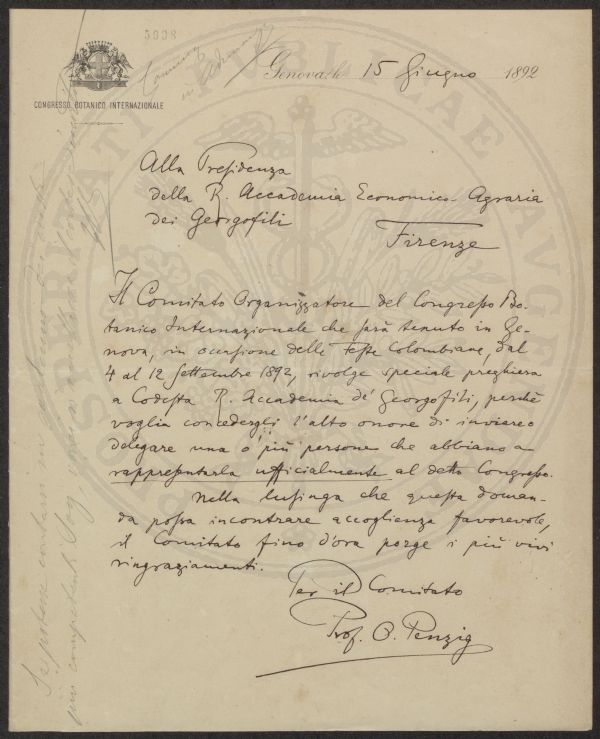 5998
CONGRESSO BOTANICO INTERNAZIONALE
Genova, li 15 Giugno 1892
Alla Presidenza
della R. Accademia Economico-Agraria
dei Georgofili
Firenze
Il Comitato Organizzatore del Congresso Bo-
tanico Internazionale che sarà tenuto in Ge-
nova, in occasione delle Feste Colombiane, dal
4 al 12 Settembre 1892, rivolge speciale preghiera
a Codesta R. Accademia de' Georgofili, perchè
voglia concedergli l'alto onore di inviare o
delegare una o più persone che abbiano a
rappresentarla ufficialmente al detto Congresso.
Nella lusinga che questa doman-
da possa incontrare accoglienza favorevole,
il Comitato fino d'ora porge i più vivi
ringraziamenti.
Per il Comitato
Prof. O. Penzig
PUBLICAE